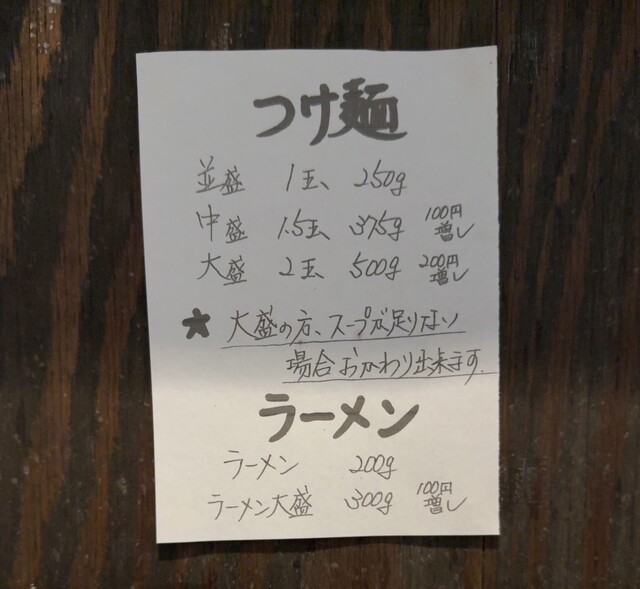 つけ麺
並盛 1玉、 250g
中盛 1.5玉、 375g 100円増し
大盛 2玉、 500g 200円増し
★ 大盛の方、スープが足りない
場合おかわり出来ます。
ラーメン
ラーメン 200g
ラーメン大盛 300g 100円増し